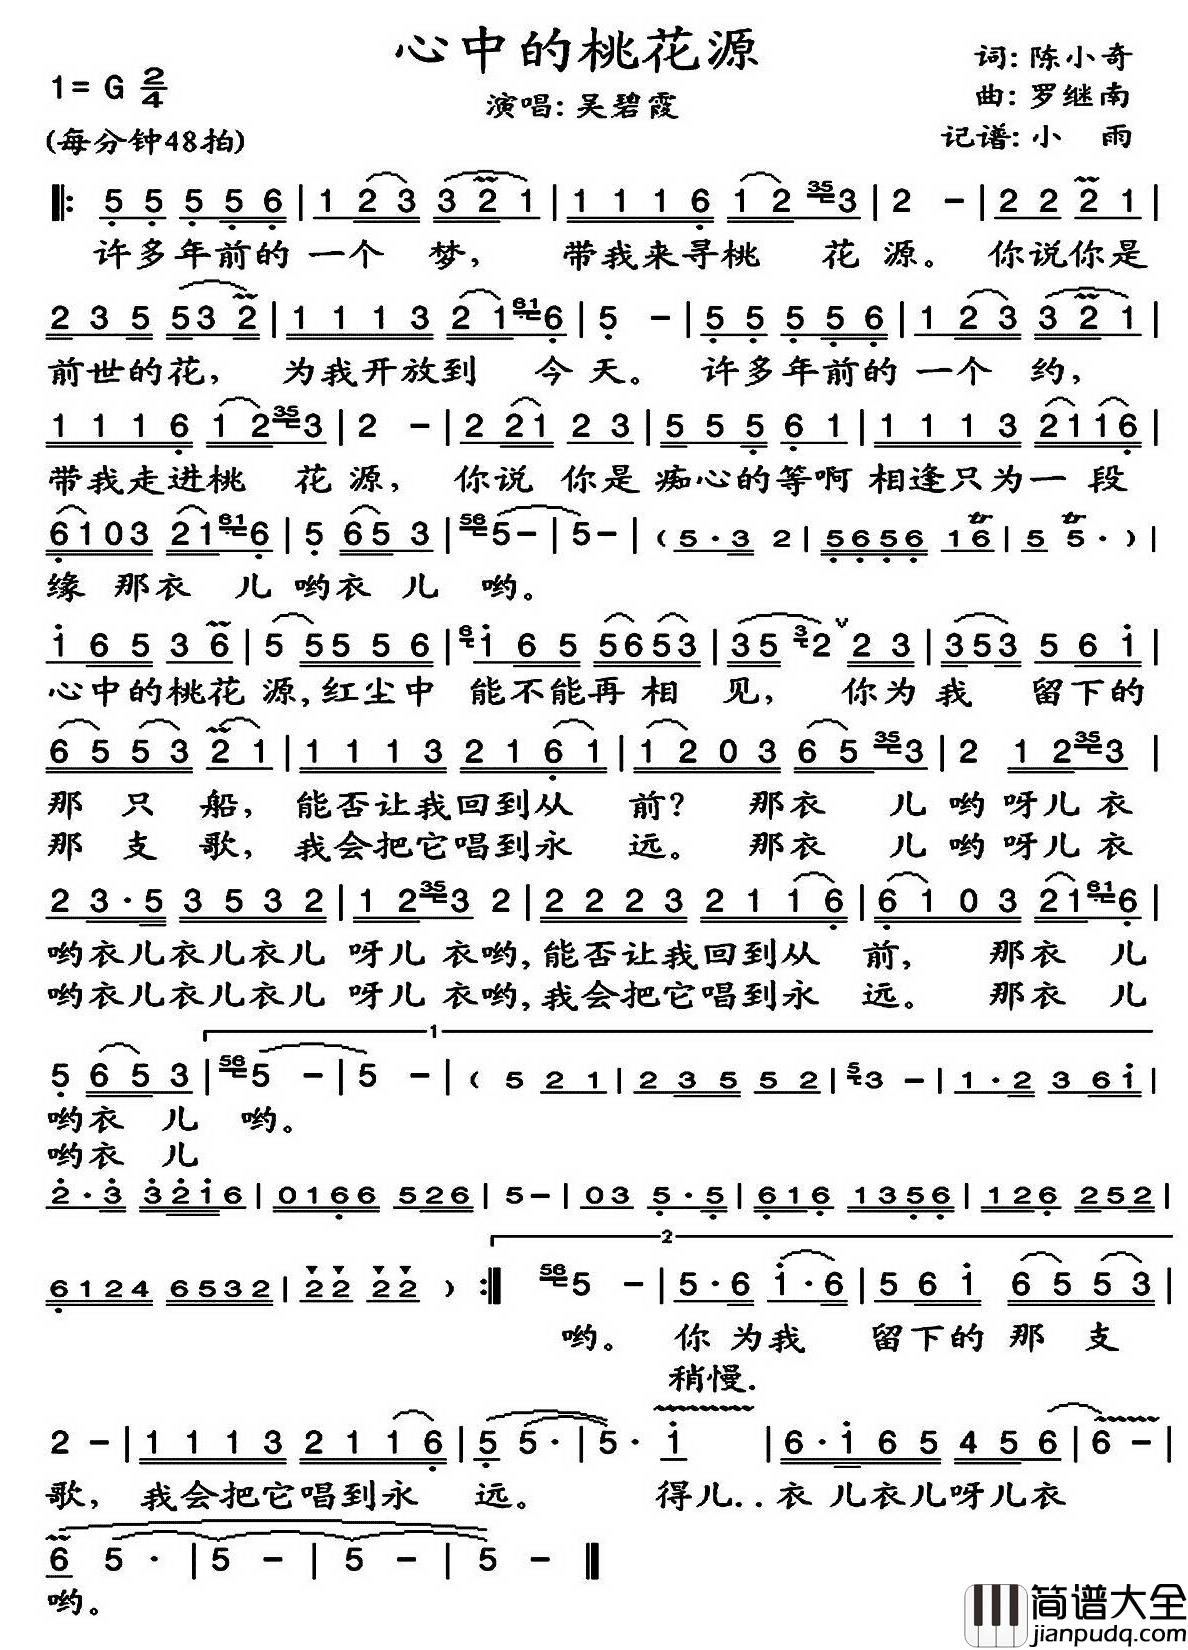 心中的桃花源
1= G 2/4
(每分钟48拍)
演唱: 吴碧霞
词: 陈小奇
曲: 罗继南
记谱: 小 雨
5 5 5 5 6 | 1 2 3 3 2 1 | 1 1 1 6 1 2 35 3 | 2 - | 2 2 2 1 |
许多年前的一个 梦, 带我来寻桃 花 源。 你说你是
2 3 5 5 3 2 | 1 1 1 3 2 1 61 6 | 5 - | 5 5 5 5 6 | 1 2 3 3 2 1 |
前世的花, 为我开放到 今 天。 许多年前的一个 约,
1 1 1 6 1 2 35 3 | 2 - | 2 2 1 2 3 | 5 5 5 6 1 | 1 1 1 3 2 1 1 6 |
带我走进桃 花 源, 你说 你是 痴心的等啊 相逢只为一 段
6 1 0 3 2 1 61 6 | 5 6 5 3 | 56 5 - | 5 - | ( 5 · 3 2 | 5 6 5 6 1 6 | 5 5 · ) |
缘 那衣 儿 哟衣 儿 哟。
1 6 5 3 6 | 5 5 5 5 6 | 6 1 6 5 5 6 5 3 | 3 5 3 2 2 3 | 3 5 3 5 6 1 |
心中的桃花 源,红尘中 能不能再 相 见, 你为 我 留下的
6 5 5 3 2 1 | 1 1 1 3 2 1 6 1 | 1 2 0 3 6 5 35 3 | 2 1 2 35 3 |
那 只 船, 能否让我回到从 前? 那衣 儿 哟 呀儿 衣
那 支 歌, 我会把它唱到永 远。 那衣 儿 哟 呀儿 衣
2 3 · 5 3 5 3 2 | 1 2 35 3 2 | 2 2 2 3 2 1 1 6 | 6 1 0 3 2 1 61 6 |
哟衣儿衣儿衣儿 呀儿 衣哟,能否让我回到从 前, 那衣 儿
哟衣儿衣儿衣儿 呀儿 衣哟,我会把它唱到永 远。 那衣 儿
1
5 6 5 3 | 56 5 - | 5 - | ( 5 2 1 | 2 3 5 5 2 | 5 3 - | 1 · 2 3 6 1 |
哟衣 儿 哟。
哟衣 儿
2 · 3 3 2 1 6 | 0 1 6 6 5 2 6 | 5 - | 0 3 5 · 5 | 6 1 6 1 3 5 6 | 1 2 6 2 5 2 |
2
6 1 2 4 6 5 3 2 | 2 2 2 2 ) :| 56 5 - | 5 · 6 1 · 6 | 5 6 1 6 5 5 3 |
哟。 你 为我 留下的 那 支
稍慢.
2 - | 1 1 1 3 2 1 1 6 | 5 5 · | 5 · 1 | 6 · 1 6 5 4 5 6 | 6 - |
歌, 我会把它唱到永 远。 得儿..衣 儿衣儿呀儿衣
6 5 · | 5 - | 5 - | 5 - ||
哟。
简谱大全
www.jianpudq.com